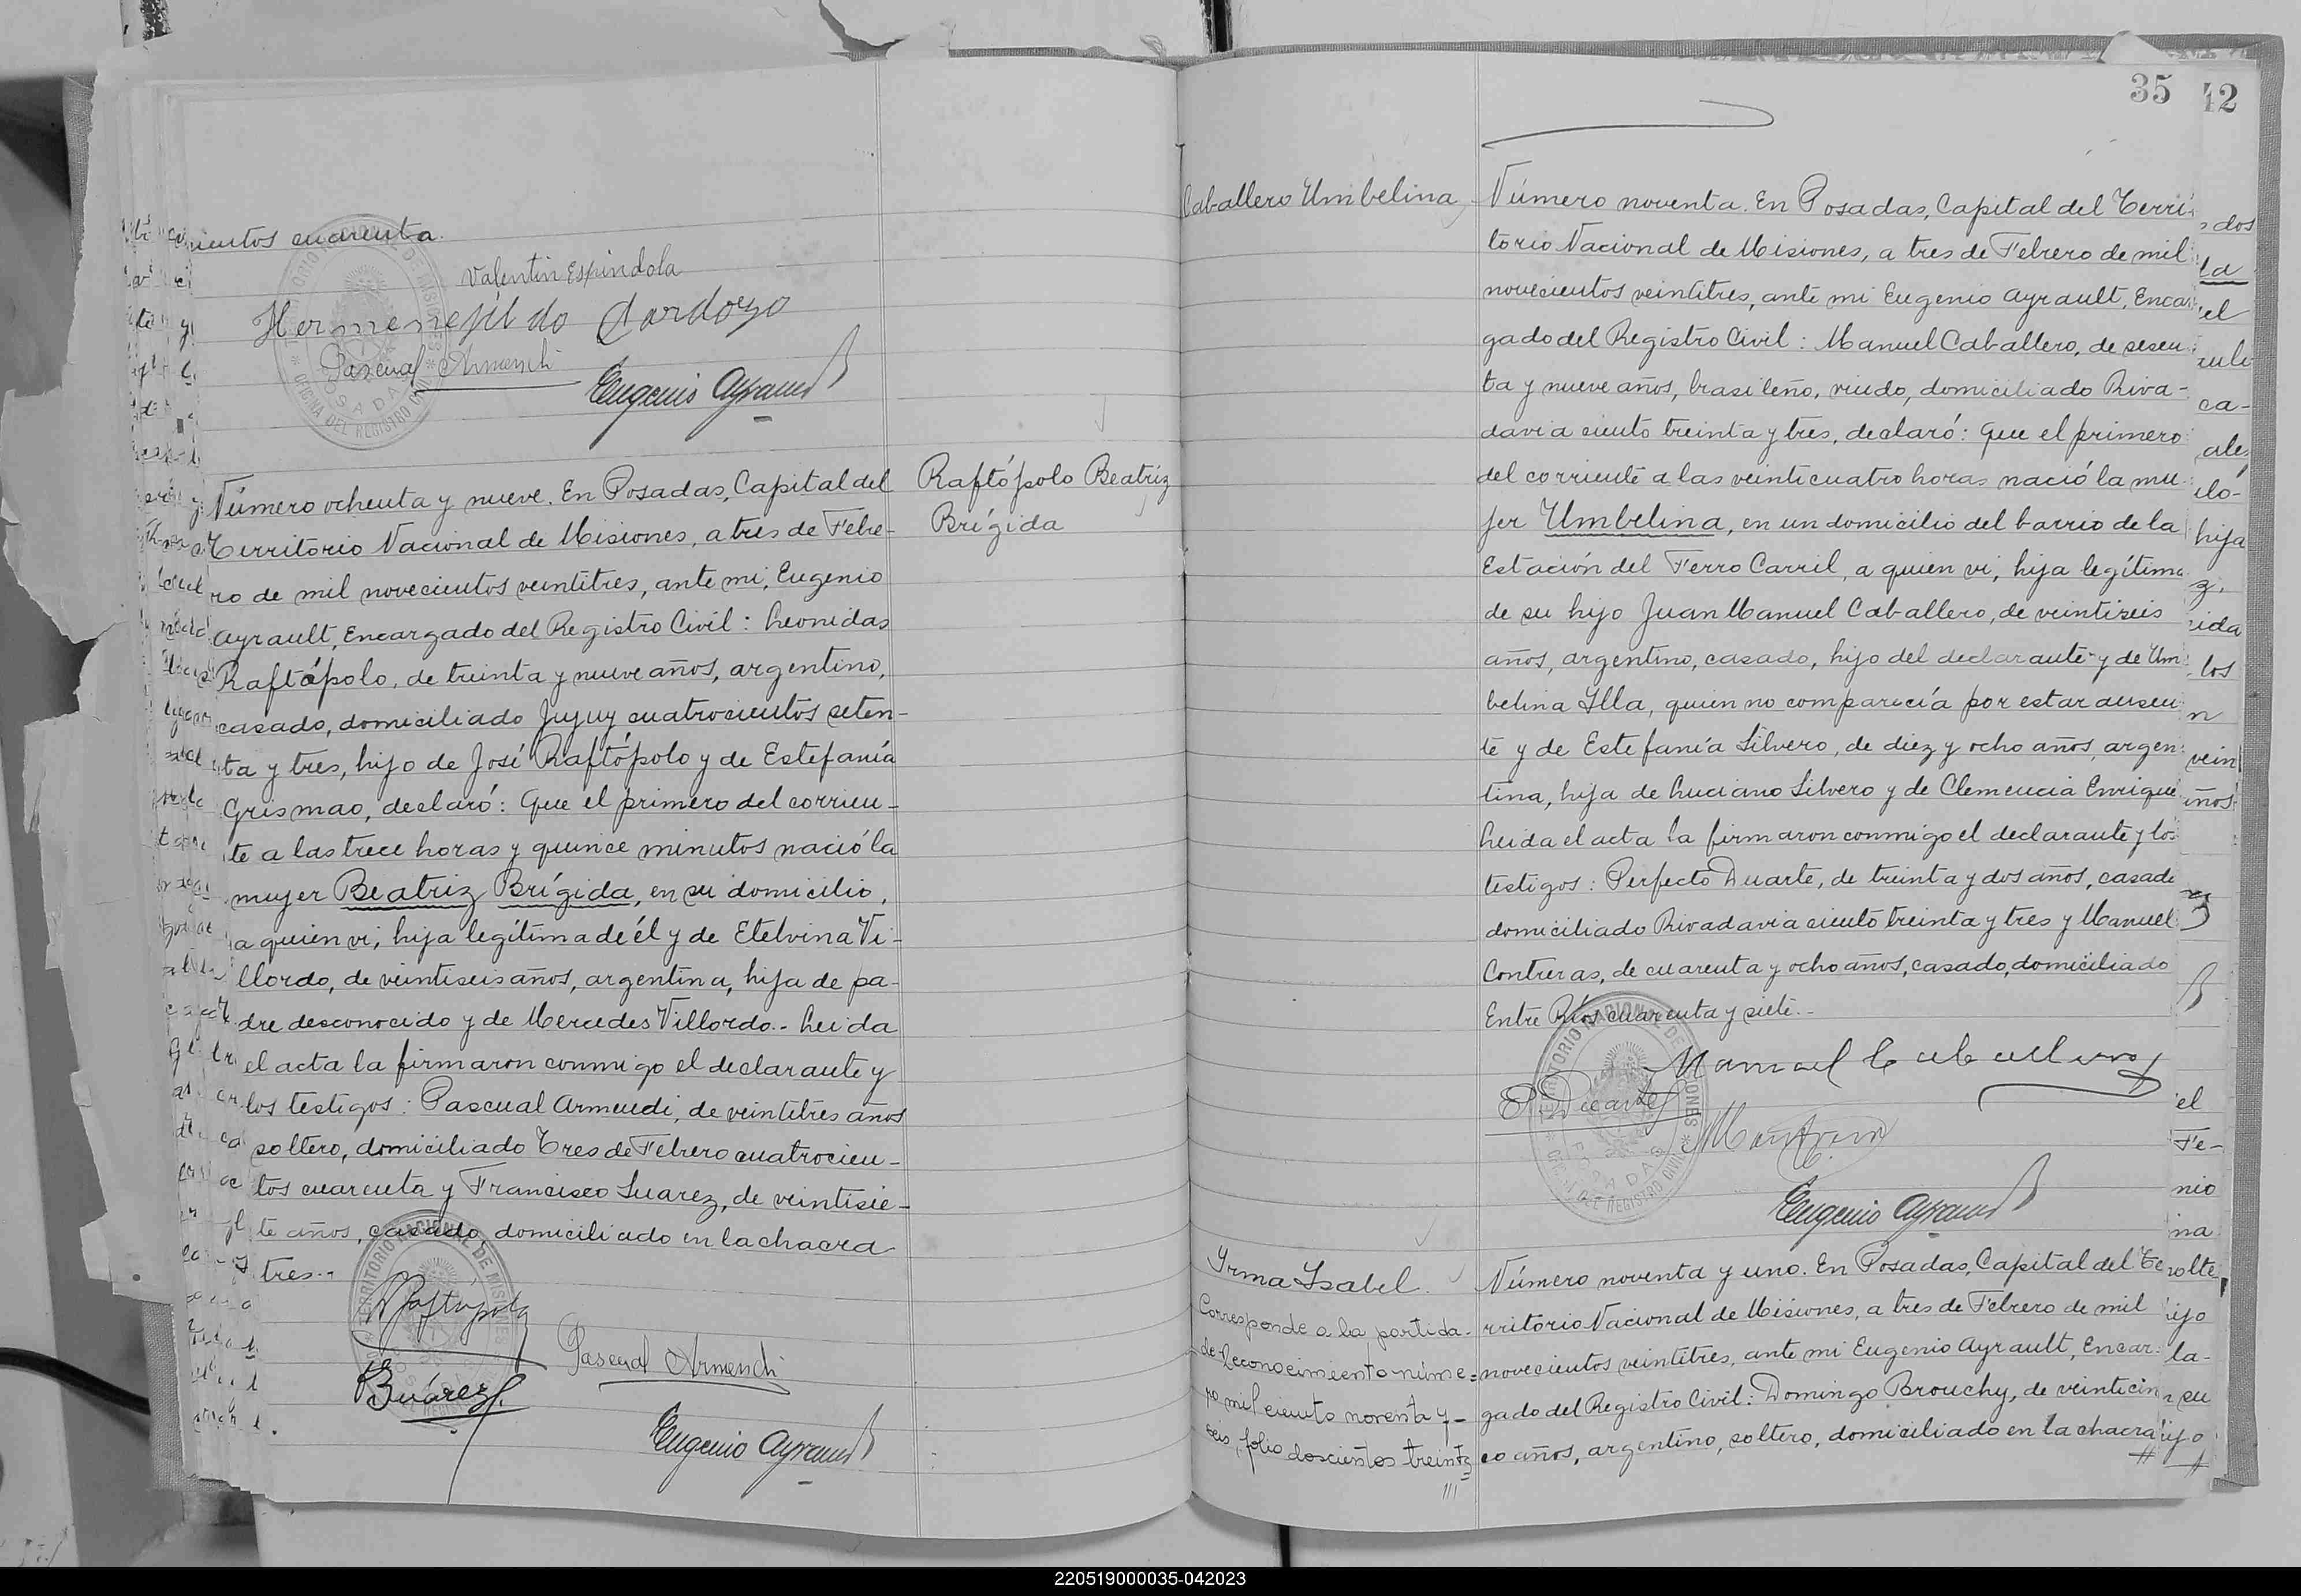 cientos cuarenta.
Valentin Espindola
Hermenejildo Cardozo
Pascual Armendi
Eugenio Ayrault
Raftópolo Beatriz
Brígida
Número ochenta y nueve. En Posadas, Capital del
Territorio Nacional de Misiones, a tres de Febre-
ro de mil novecientos veintitres, ante mi, Eugenio
Ayrault, Encargado del Registro Civil: Leonidas
Raftópolo, de treinta y nueve años, argentino,
casado, domiciliado Jujuy cuatrocientos seten-
ta y tres, hijo de José Raftópolo y de Estefanía
Grismao, declaró: Que el primero del corrien-
te a las trece horas y quince minutos nació la
mujer Beatriz Brígida, en su domicilio,
a quien vi, hija legítima de él y de Etelvina Vi-
llordo, de veintiseis años, argentina, hija de pa-
dre desconocido y de Mercedes Villordo.- Leida
el acta la firmaron conmigo el declarante y
los testigos: Pascual Armendi, de veintitres años
soltero, domiciliado Tres de Febrero cuatrocien-
tos cuarenta y Francisco Suarez, de veintisie-
te años, casado, domiciliado en la chacra
tres.-
Raftópolo
Pascual Armendi
Suárez
Eugenio Ayrault
35
42
Caballero Umbelina
Número noventa. En Posadas, Capital del Terri
torio Nacional de Misiones, a tres de Febrero de mil
novecientos veintitres, ante mi Eugenio Ayrault, Encar
gado del Registro Civil: Manuel Caballero, de sesen
ta y nueve años, brasileño, viudo, domiciliado Riva-
davia ciento treinta y tres, declaró: Que el primero
del corriente a las veinticuatro horas nació la mu
jer Umbelina, en un domicilio del barrio de la
Estación del Ferro Carril, a quien vi, hija legítima
de su hijo Juan Manuel Caballero, de veintiseis
años, argentino, casado, hijo del declarante y de Um
belina Illa, quien no comparecía por estar ausen
te y de Estefanía Silvero, de diez y ocho años, argen
tina, hija de Luciano Silvero y de Clemencia Enrique
Leida el acta la firmaron conmigo el declarante y los
testigos: Perfecto Duarte, de treinta y dos años, casado
domiciliado Rivadavia ciento treinta y tres y Manuel
Contreras, de cuarenta y ocho años, casado, domiciliado
Entre Ríos cuarenta y siete.-
Manuel Caballero
P. Duarte
Eugenio Ayrault
Irma Isabel.
Corresponde a la partida
de reconocimiento núme=
ro mil ciento noventa y-
seis, folio doscientos treinta
Número noventa y uno. En Posadas, Capital del Te
rritorio Nacional de Misiones, a tres de Febrero de mil
novecientos veintitres, ante mi Eugenio Ayrault, Encar
gado del Registro Civil: Domingo Brouchy, de veinticin
co años, argentino, soltero, domiciliado en la chacra
TERRITORIO NACIONAL DE MISIONES
OFICINA DEL REGISTRO CIVIL
POSADAS
220519000035-042023